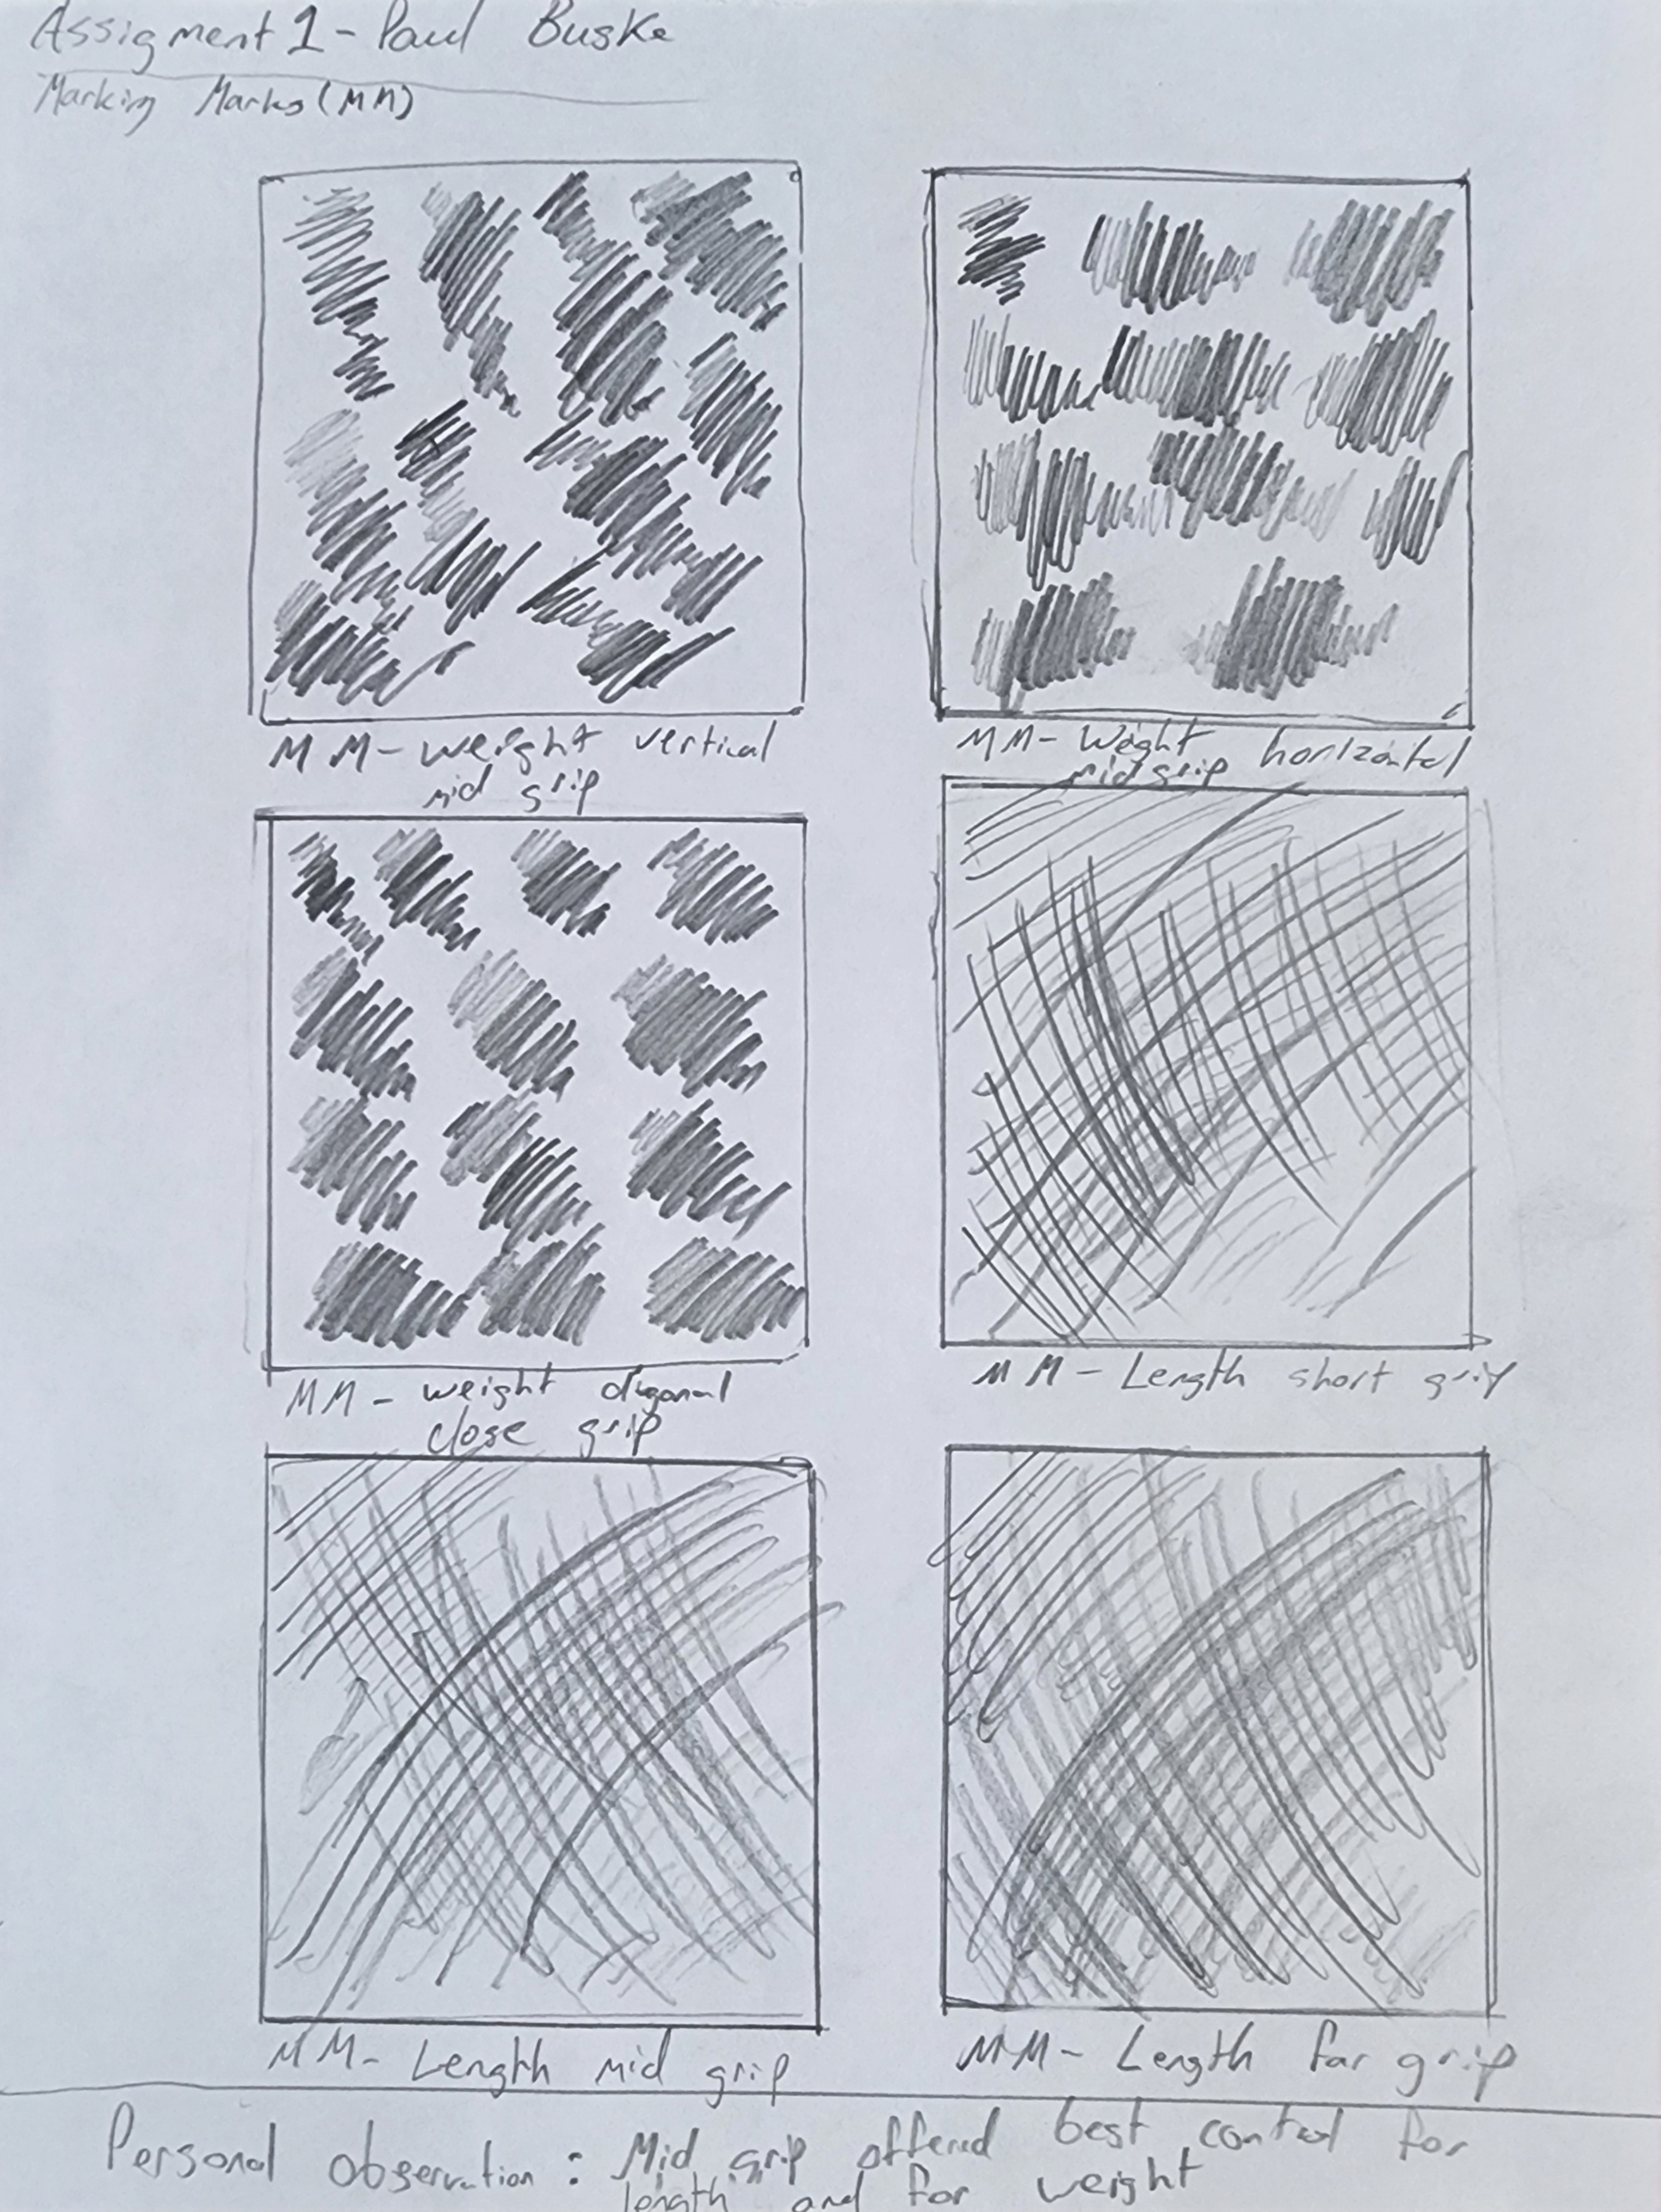 Assigment 1 - Paul Buske
Marking Marks (MM)
MM - weight vertical
mid grip
MM - Weght horizontal
mid grip
MM - weight diganal
close grip
MM - Length short grip
MM - Length mid grip
MM - Length far grip
Personal observation : Mid grip offered best control for
length and for weight